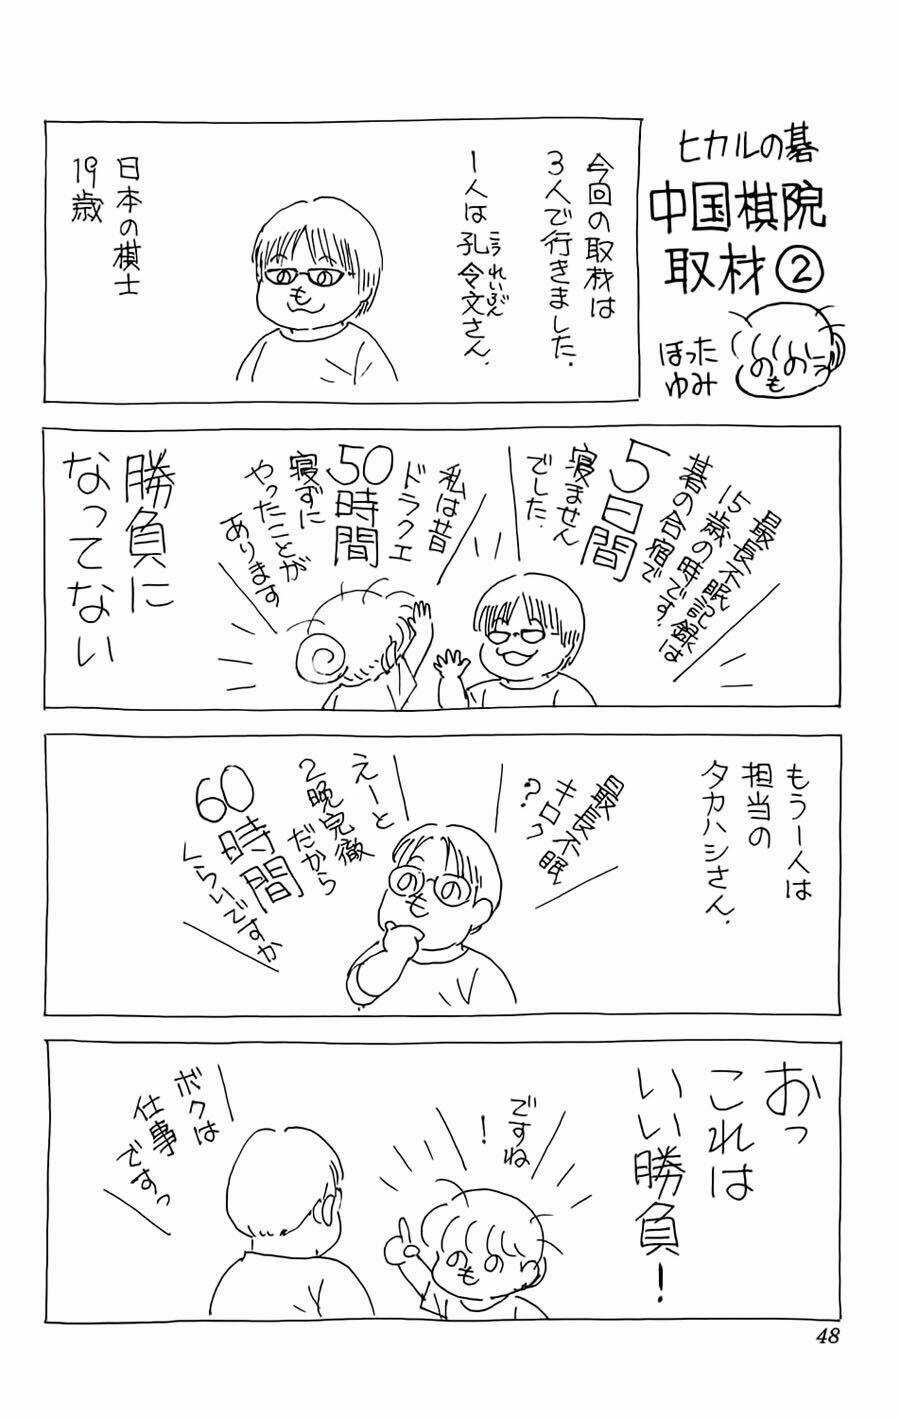 ヒカルの碁
中国棋院
取材②
ほった
ゆみ
今回の取材は
3人で行きました.
1人は孔令文さん.
こう れいぶん
日本の棋士
19歳
最長不眠記録は
15歳の時です.
碁の合宿で
5日間
寝ません
でした.
私は昔
ドラクエ
50時間
寝ずに
やったことが
あります
勝負に
なってない
もう1人は
担当の
タカハシさん.
最長不眠
キロク
?
えーと
2晩完徹
だから
60時間
くらいですか
おっ
これは
いい勝負!
ですね
!
ボクは
仕事
ですっ
48